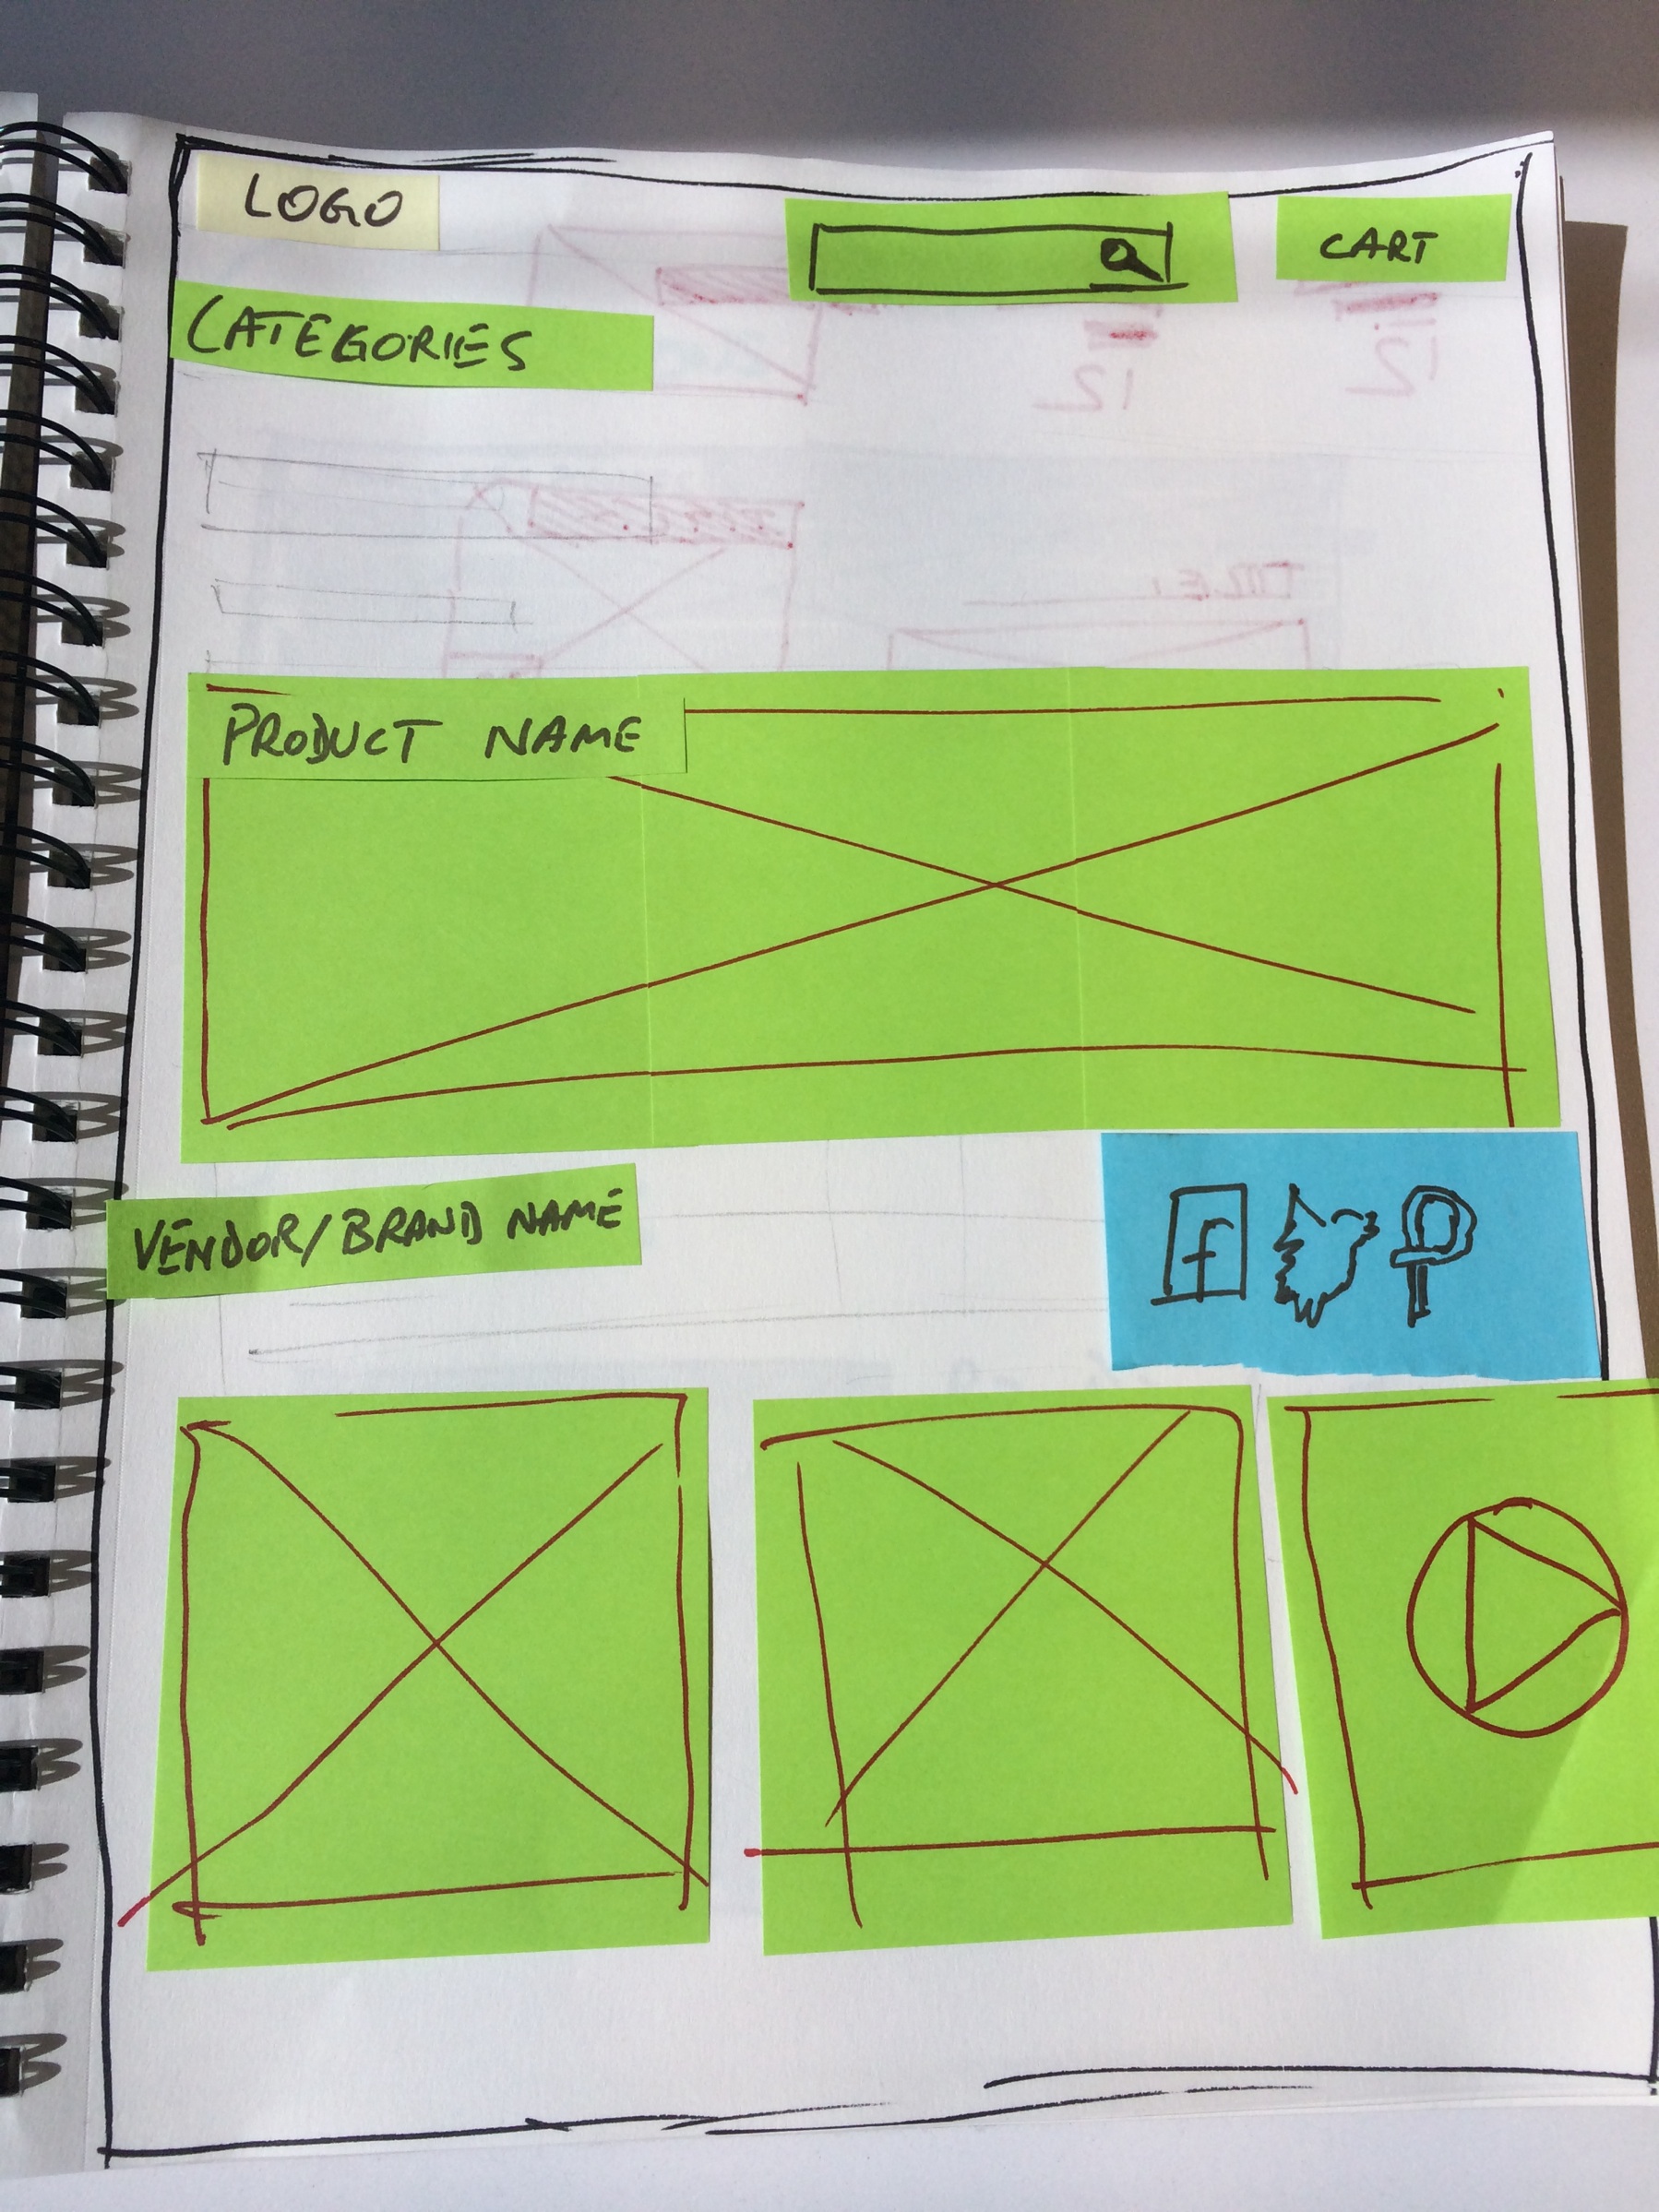 LOGO
CART
CATEGORIES
12
12
TITLE
PRODUCT NAME
VENDOR/BRAND NAME
f